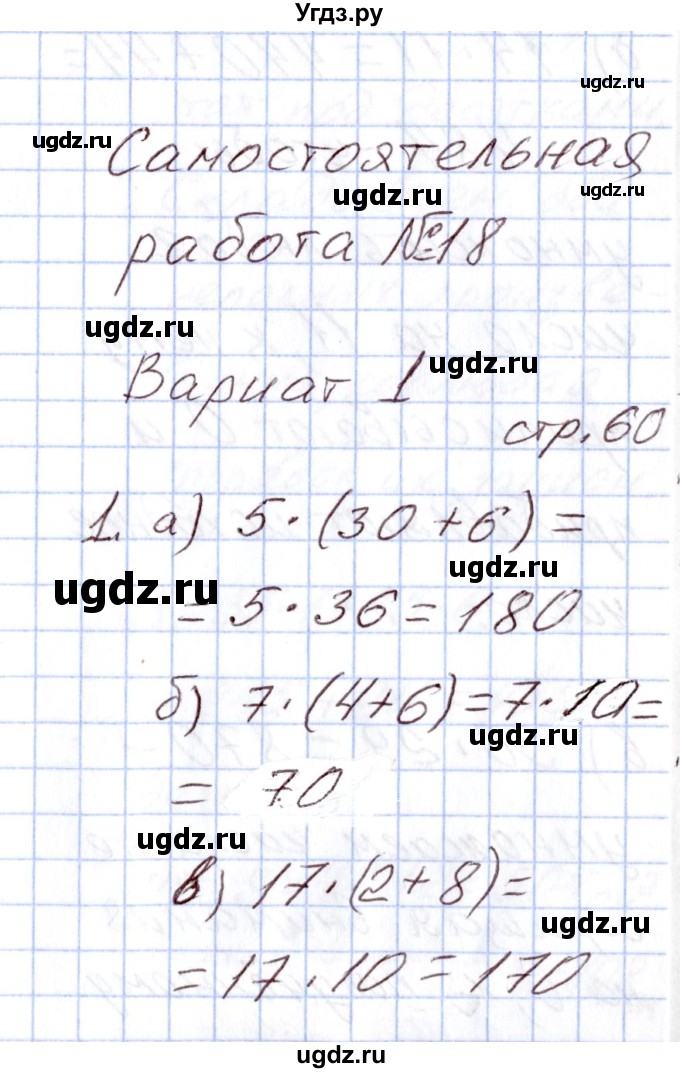 Угдз.ру
ugdz.ru
ugdz.ru
Самостоятельная
ugdz.ru
ugdz.ru
работа №18
ugdz.ru
ugdz.ru
Вариат 1
стр. 60
1. а) 5·(30+6)=
ugdz.ru
ugdz.ru
=5·36=180
б) 7·(4+6)=7·10=
ugdz.ru
= 70
ugdz.ru
в) 17·(2+8)=
ugdz.ru
=17·10=170
ugdz.ru
ugdz.ru